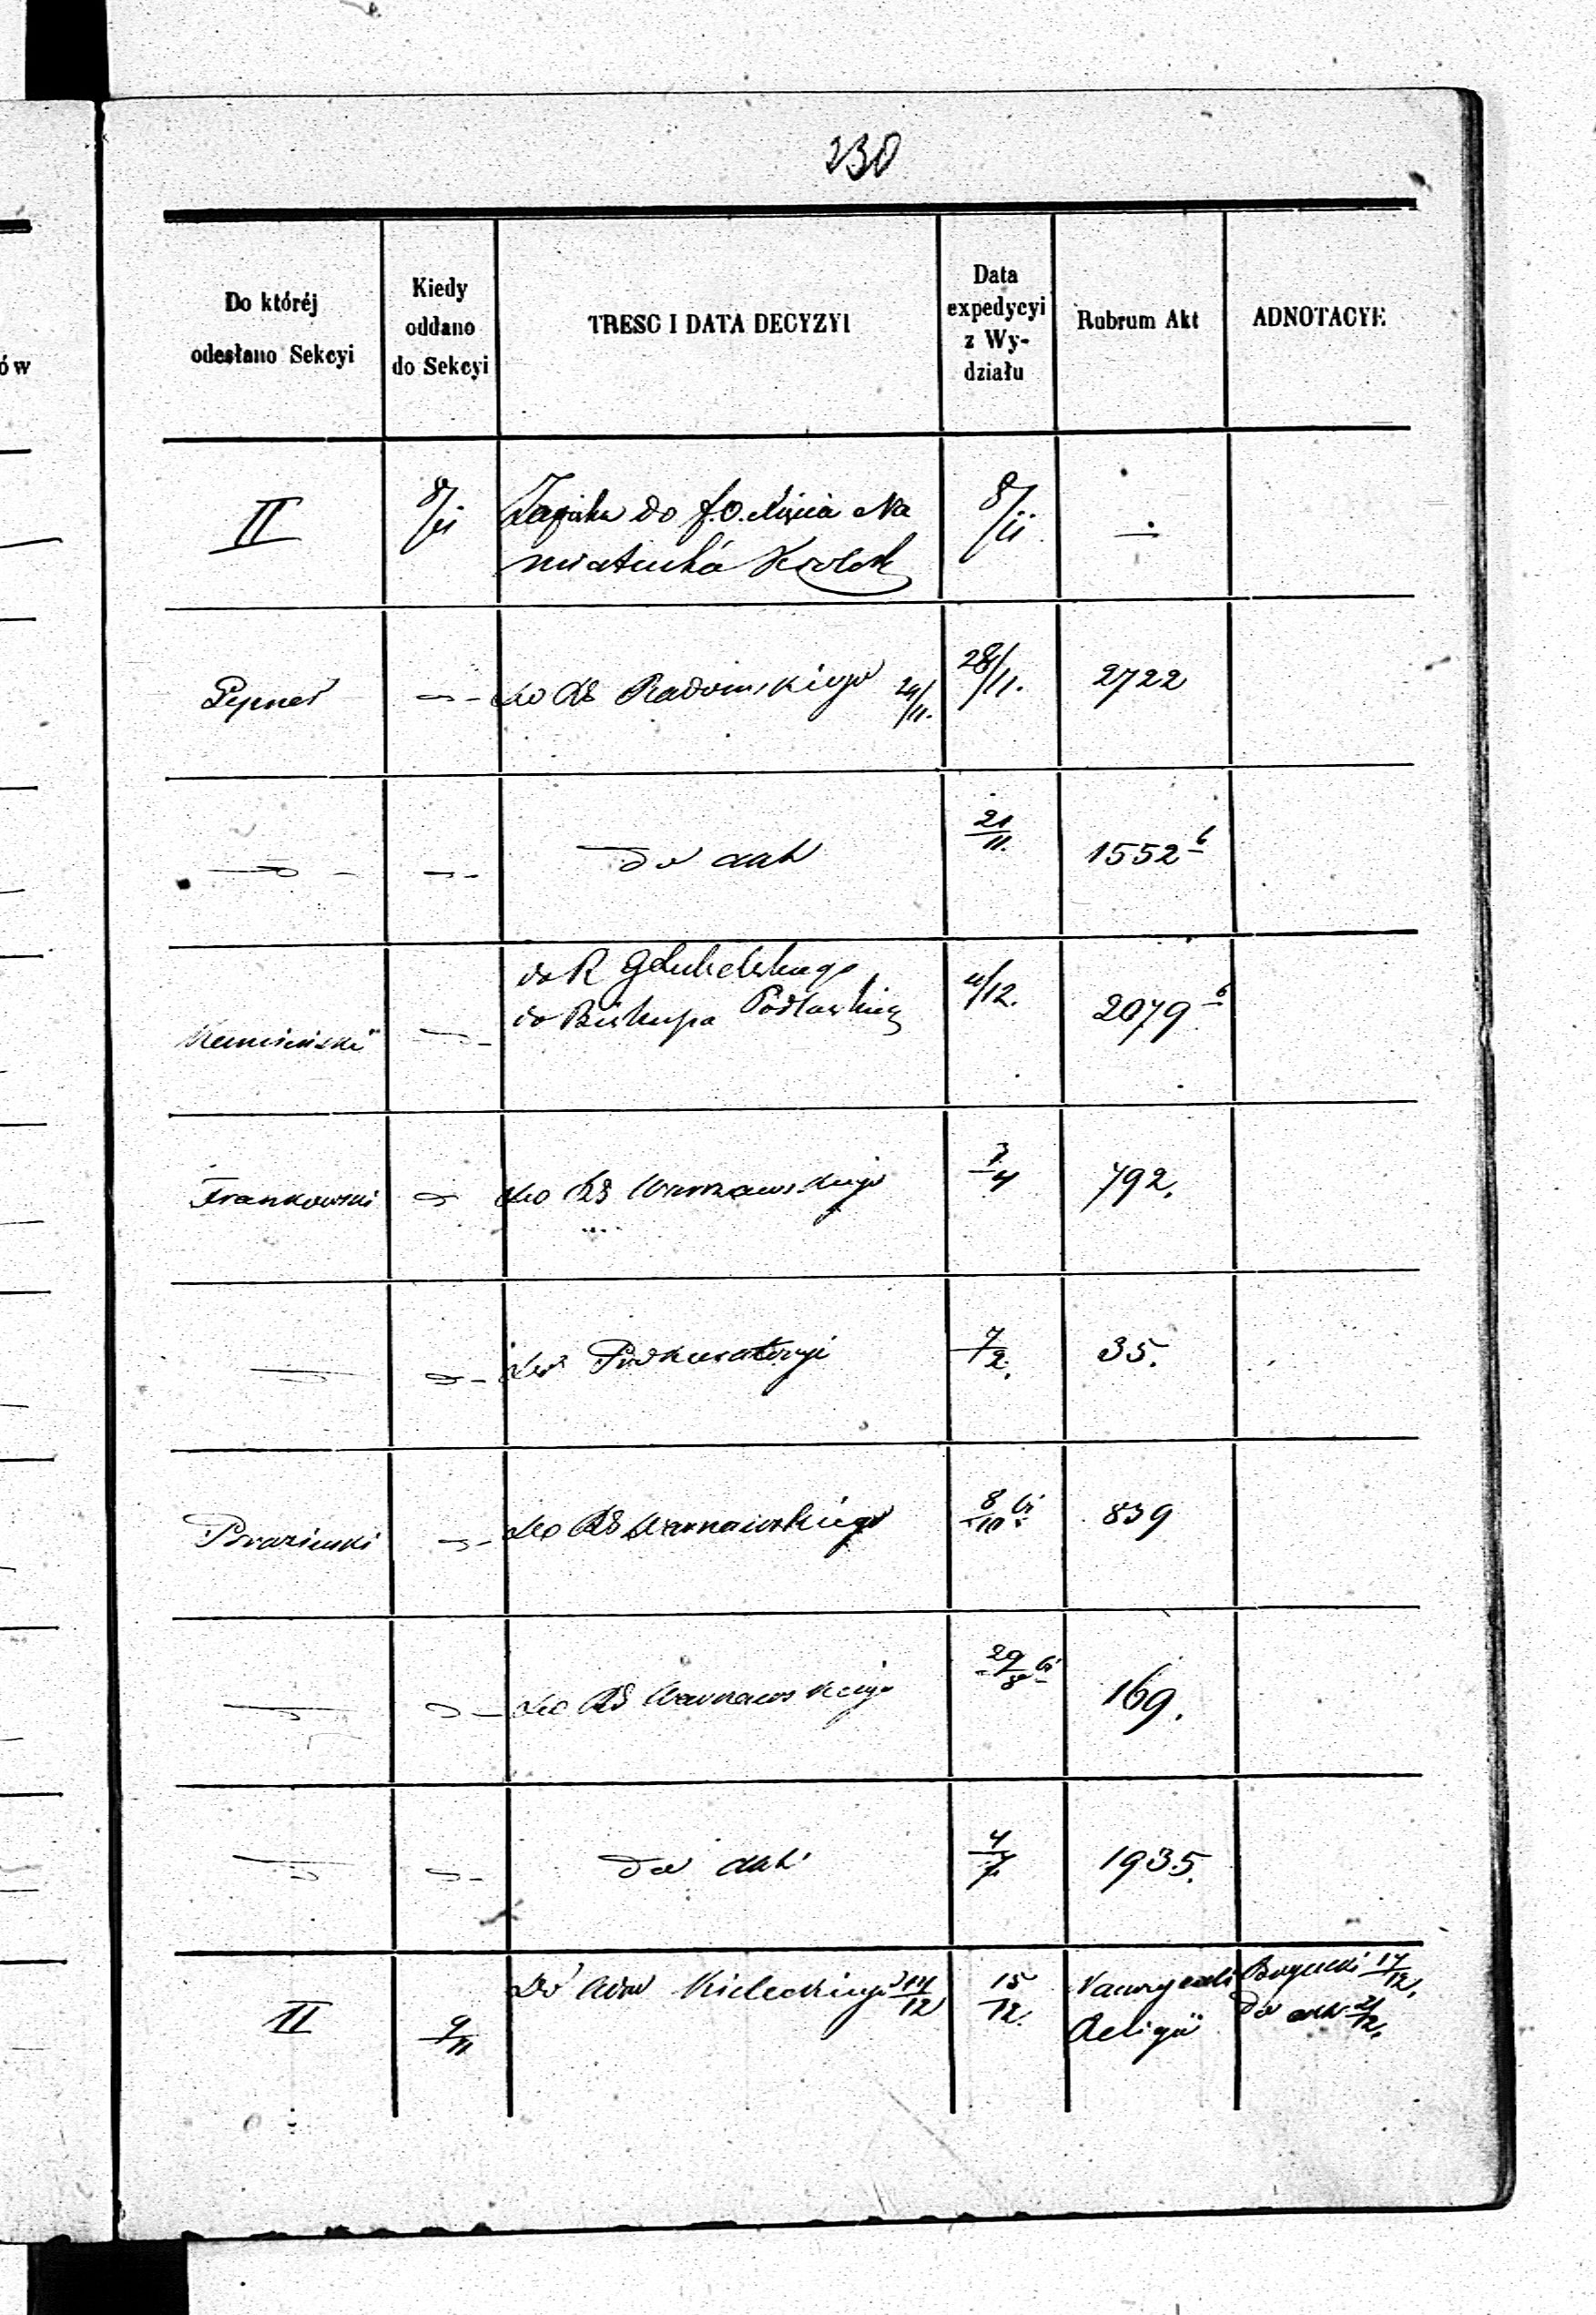 230
ów
Do któréj
odesłano Sekcyi
Kiedy
oddano
do Sekcyi
TRESC I DATA DECYZYI
Data
expedycyi
z Wy-
działu
Rubrum Akt
ADNOTACYE
II
8/11
do Xięcia Na
miestnika
8/11
do Radomskiego 24/11.
28/11.
2722
do akt
21/11.
1552 b
do R G Lubelskiego
do Biskupa Podlaskieg
4/12.
2079 b
Frankowski
do Warszawskiego
792.
do Prokuratoryi
7/2.
35.
do Warszawskiego
8/10
839
do Warszawskiego
29/8
169.
do akt
4/7
1935.
II
9/11
Do Kieleckiego 14/12
15/12.
Religii
Bogucki 17/12.
do akt 21/12.